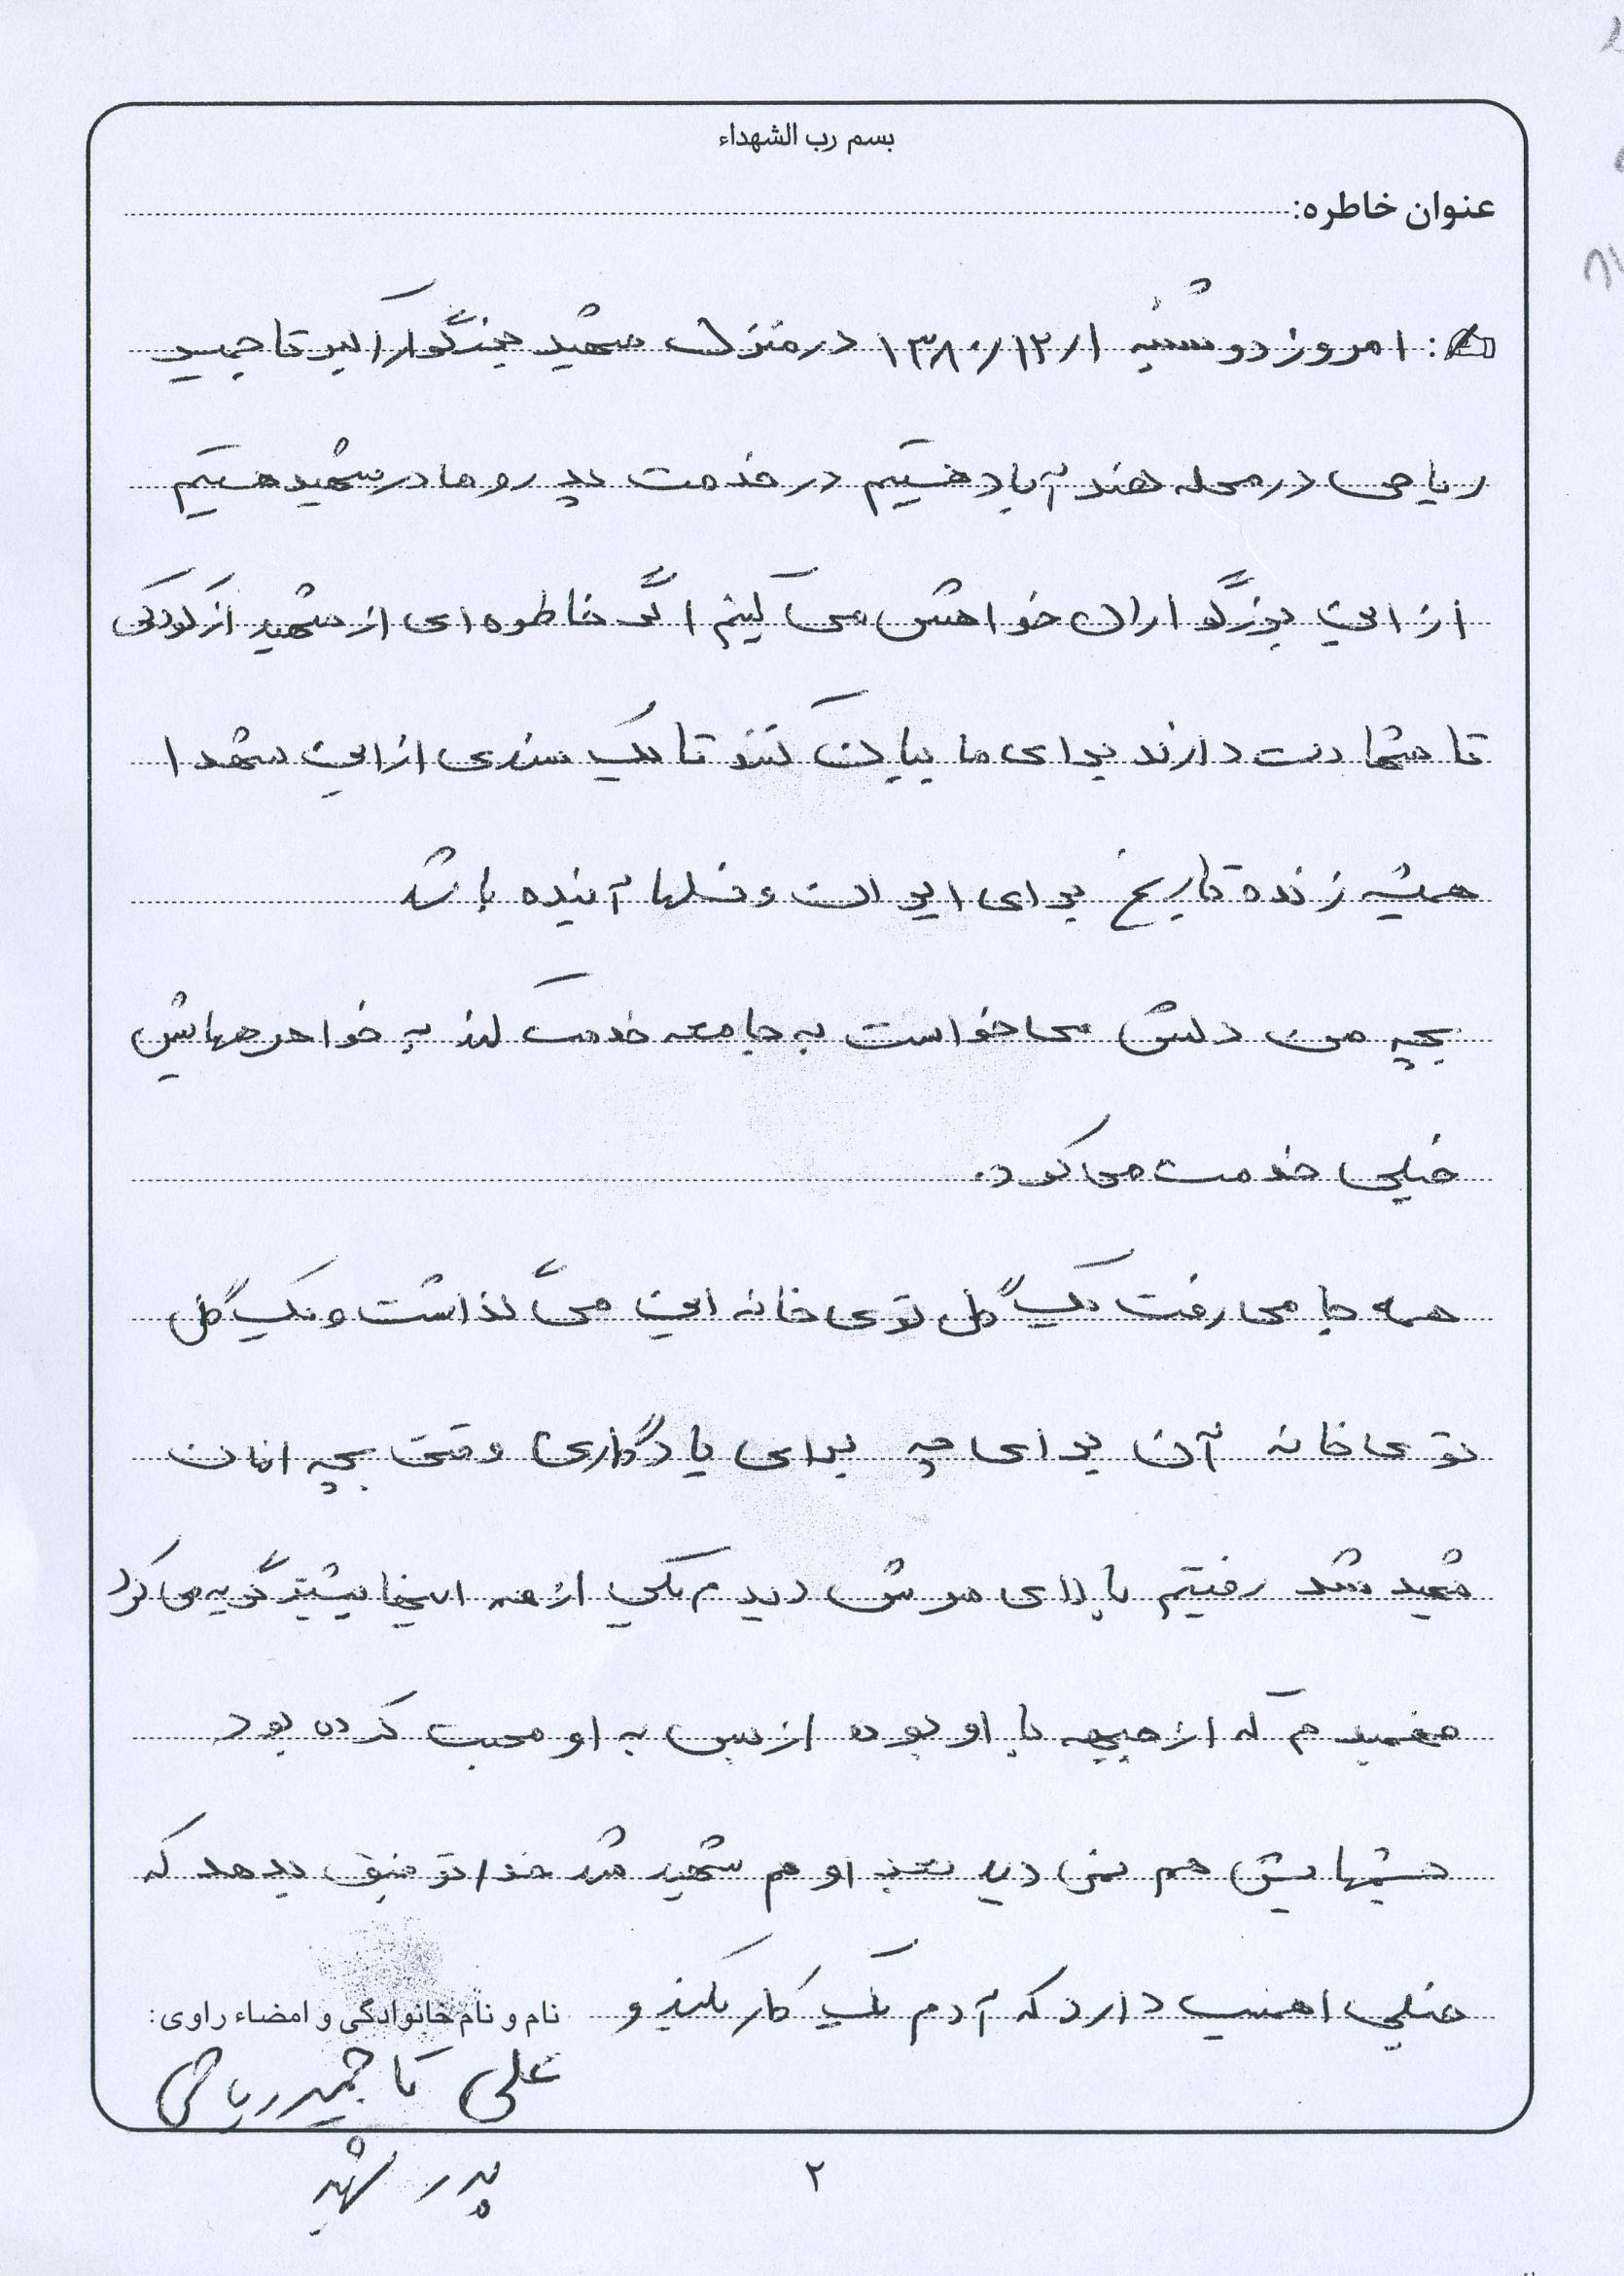 بسم رب الشهداء
عنوان خاطره:
: امروز دوشنبه ۱۳۸۰/۱۲/۱ در منزل شهید اکبر تاجمیر
ریاحی در محله هند آباد هستیم در خدمت پدر و مادر شهید هستیم
از این بزرگواران خواهش می کنیم اگر خاطره ای از شهید از کودکی
تا شهادت دارند برای ما بیان کنند تا یک سندی از این شهدا
همیشه زنده تاریخ برای ایران و نسلها آینده باشد
بچه من دلش می خواست به جامعه خدمت کند به خواهرهایش
خیلی خدمت می کرد.
همه جا می رفت یک گل توی خانه این می گذاشت و یک گل
توی خانه آن برای چه برای یادگاری وقتی بچه امان
شهید شد رفتیم بالای سرش دیدم یکی از همه اینها بیشتر گریه می کرد
فهمیدم که از جبهه با او بوده از بس به او محبت کرده بود
چشمهایش هم نمی دید بعد او هم شهید شد خدا توفیق بدهد که
خیلی اهمیت دارد که آدم یک کار بکند و
نام و نام خانوادگی و امضاء راوی:
علی تاجمیر ریاحی
پدر شهید
۲